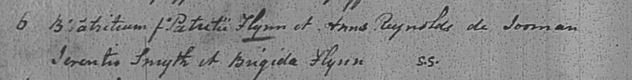 6 B. Patritium f. Patritii Flynn et Anna Reynolds de Tooman
Terentio Smyth et Brigida Flynn s.s.